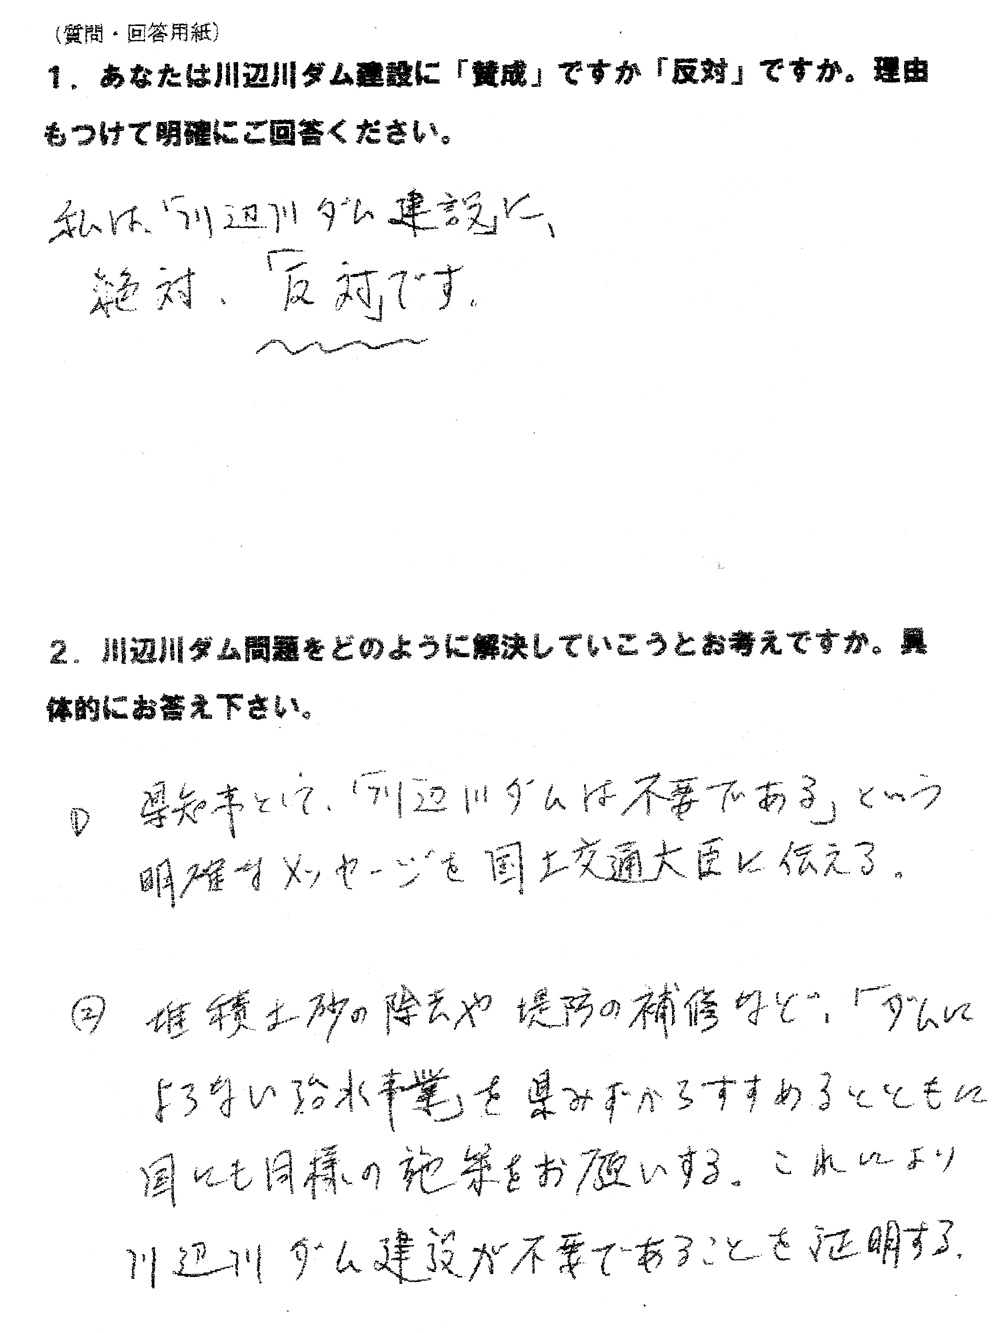 （質問・回答用紙）
１．あなたは川辺川ダム建設に「賛成」ですか「反対」ですか。理由
もつけて明確にご回答ください。
私は、「川辺川ダム建設」に、
絶対、「反対」です。
２．川辺川ダム問題をどのように解決していこうとお考えですか。具
体的にお答え下さい。
① 県知事として、「川辺川ダムは不要である」という
明確なメッセージを国土交通大臣に伝える。
② 堆積土砂の除去や堤防の補修など、「ダムに
よらない治水事業」を県みずからすすめるとともに
国にも同様の施策をお願いする。これにより
川辺川ダム建設が不要であることを証明する。